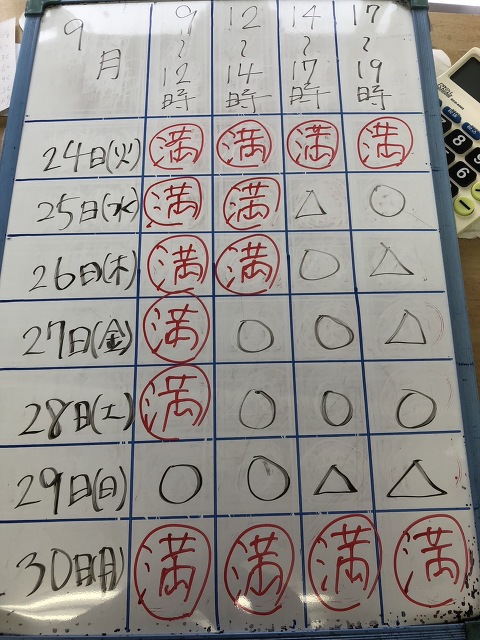 9月 9～12時 12～14時 14～17時 17～19時
24日(火) 満 満 満 満
25日(水) 満 満 △ ○
26日(木) 満 満 ○ △
27日(金) 満 ○ ○ △
28日(土) 満 ○ ○ ○
29日(日) ○ ○ △ △
30日(月) 満 満 満 満